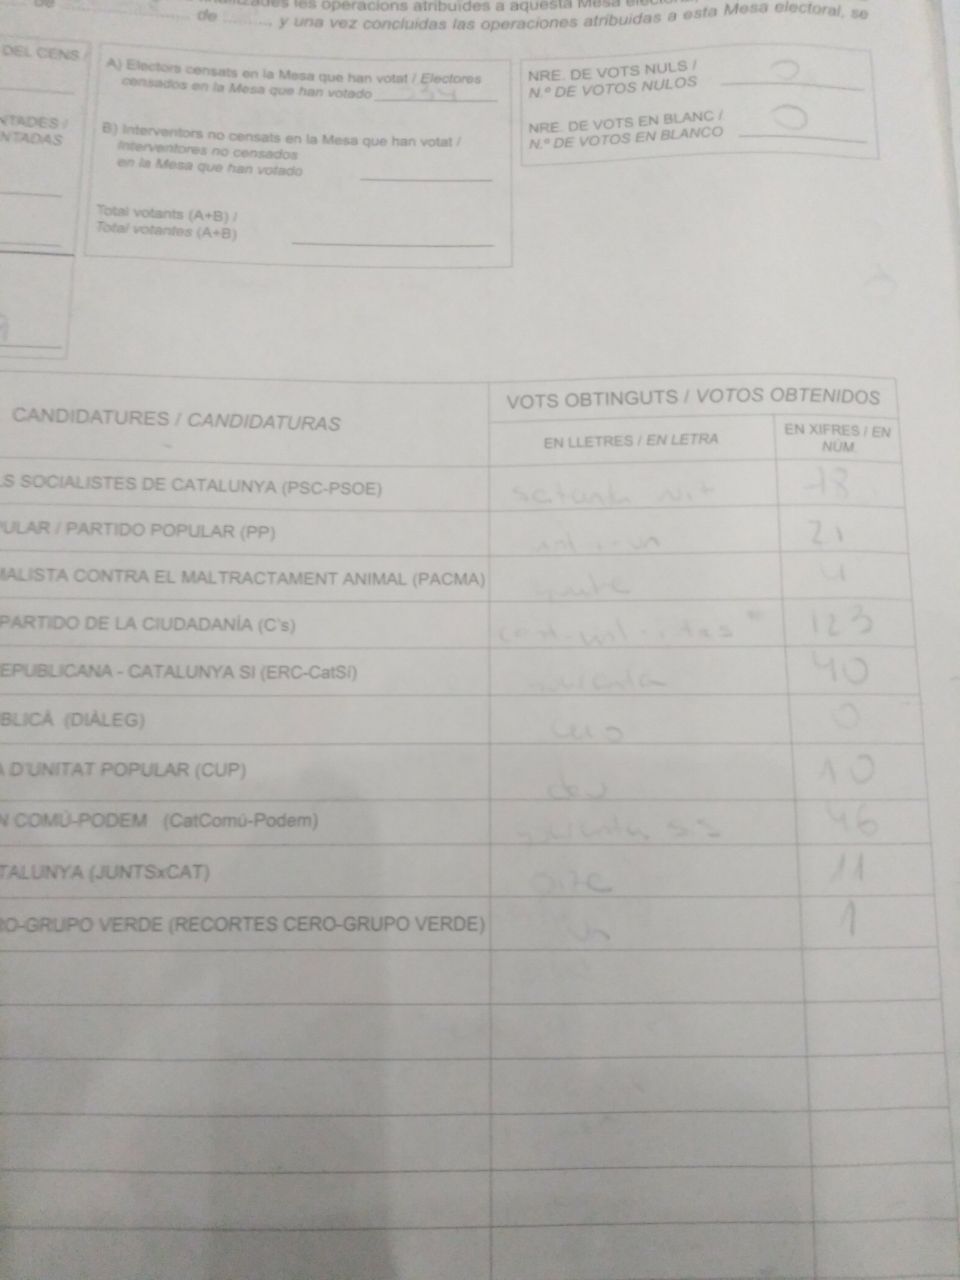 les operacions atribuïdes a aquesta Mesa
de ........, y una vez concluidas las operaciones atribuidas a esta Mesa electoral, se
DEL CENS /
A) Electors censats en la Mesa que han votat / Electores
censados en la Mesa que han votado 334
NTADES /
NTADAS
B) Interventors no censats en la Mesa que han votat /
Interventores no censados
en la Mesa que han votado
Total votants (A+B) /
Total votantes (A+B)
NRE. DE VOTS NULS / 0
N.º DE VOTOS NULOS
NRE. DE VOTS EN BLANC / 0
N.º DE VOTOS EN BLANCO
CANDIDATURES / CANDIDATURAS
VOTS OBTINGUTS / VOTOS OBTENIDOS
EN LLETRES / EN LETRA
EN XIFRES / EN
NÚM.
S SOCIALISTES DE CATALUNYA (PSC-PSOE) setanta vuit 78
ULAR / PARTIDO POPULAR (PP) 21
MALISTA CONTRA EL MALTRACTAMENT ANIMAL (PACMA) quatre 4
PARTIDO DE LA CIUDADANÍA (C's) 123
EPUBLICANA - CATALUNYA SÍ (ERC-CatSí) quaranta 40
BLICÀ (DIÀLEG) zero 0
A D'UNITAT POPULAR (CUP) deu 10
N COMÚ-PODEM (CatComú-Podem) quaranta sis 46
TALUNYA (JUNTSxCAT) onze 11
RO-GRUPO VERDE (RECORTES CERO-GRUPO VERDE) un 1